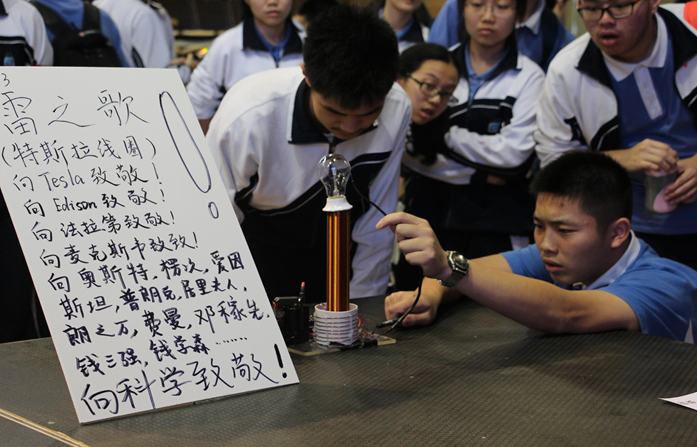 3
雷之歌!
(特斯拉线圈)
向Tesla致敬!
向Edison致敬!
向法拉第致敬!
向麦克斯韦致敬!
向奥斯特,楞次,爱因
斯坦,普朗克,居里夫人,
朗之万,费曼,邓稼先,
钱三强,钱学森……
向科学致敬!